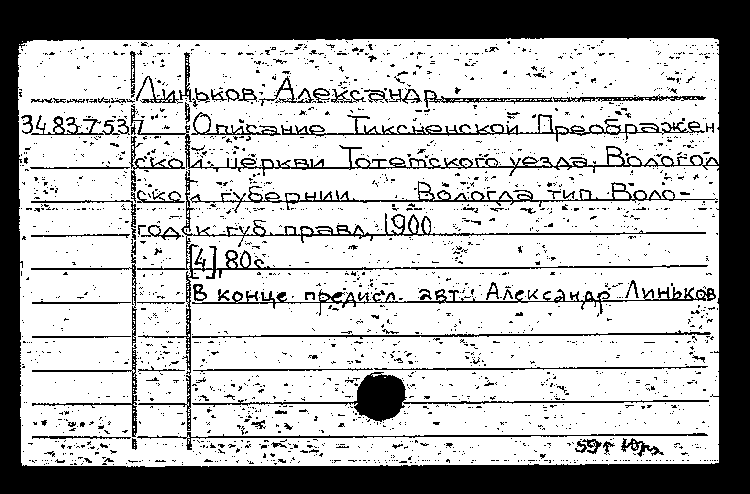 Линьков, Александр.
34.83.7.537 Описание Тиксненской Преображен-
ской церкви Тотемского уезда, Вологод
ской губернии. Вологда, тип. Воло-
годск. губ. правл., 1900
[4], 80с.
В конце предисл. авт.: Александр Линьков
59г